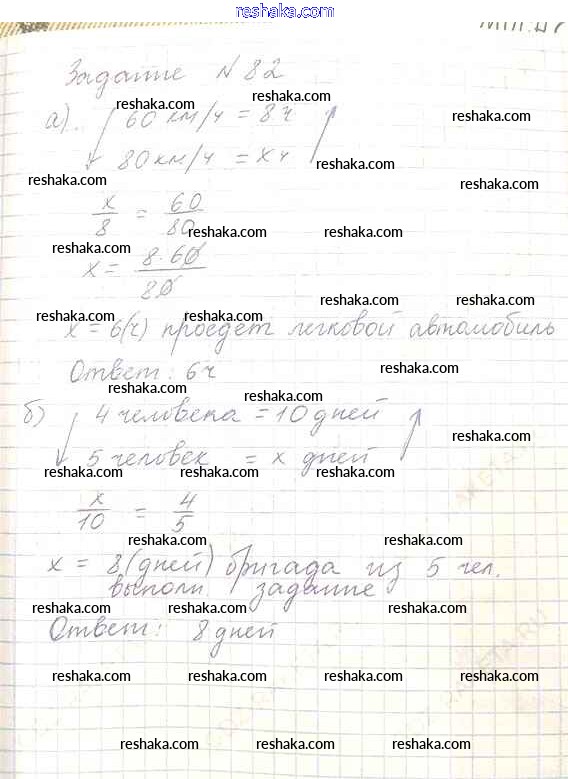 reshaka.com
Задание N 82
reshaka.com
reshaka.com reshaka.com
а) 60 км/ч = 8 ч
reshaka.com
80 км/ч = x ч
reshaka.com reshaka.com
x/8 = 60/80
reshaka.com reshaka.com reshaka.com
x = 8·60/80
reshaka.com reshaka.com
reshaka.com reshaka.com reshaka.com
x = 6(ч) проедет легковой автомобиль
reshaka.com
Ответ: 6 ч
reshaka.com reshaka.com
б) 4 человека = 10 дней
reshaka.com
5 человек = x дней
reshaka.com reshaka.com reshaka.com
x/10 = 4/5
reshaka.com reshaka.com
x = 8(дней) бригада из 5 чел.
выполн. задание
reshaka.com reshaka.com reshaka.com
Ответ: 8 дней
reshaka.com reshaka.com reshaka.com reshaka.com
reshaka.com reshaka.com reshaka.com